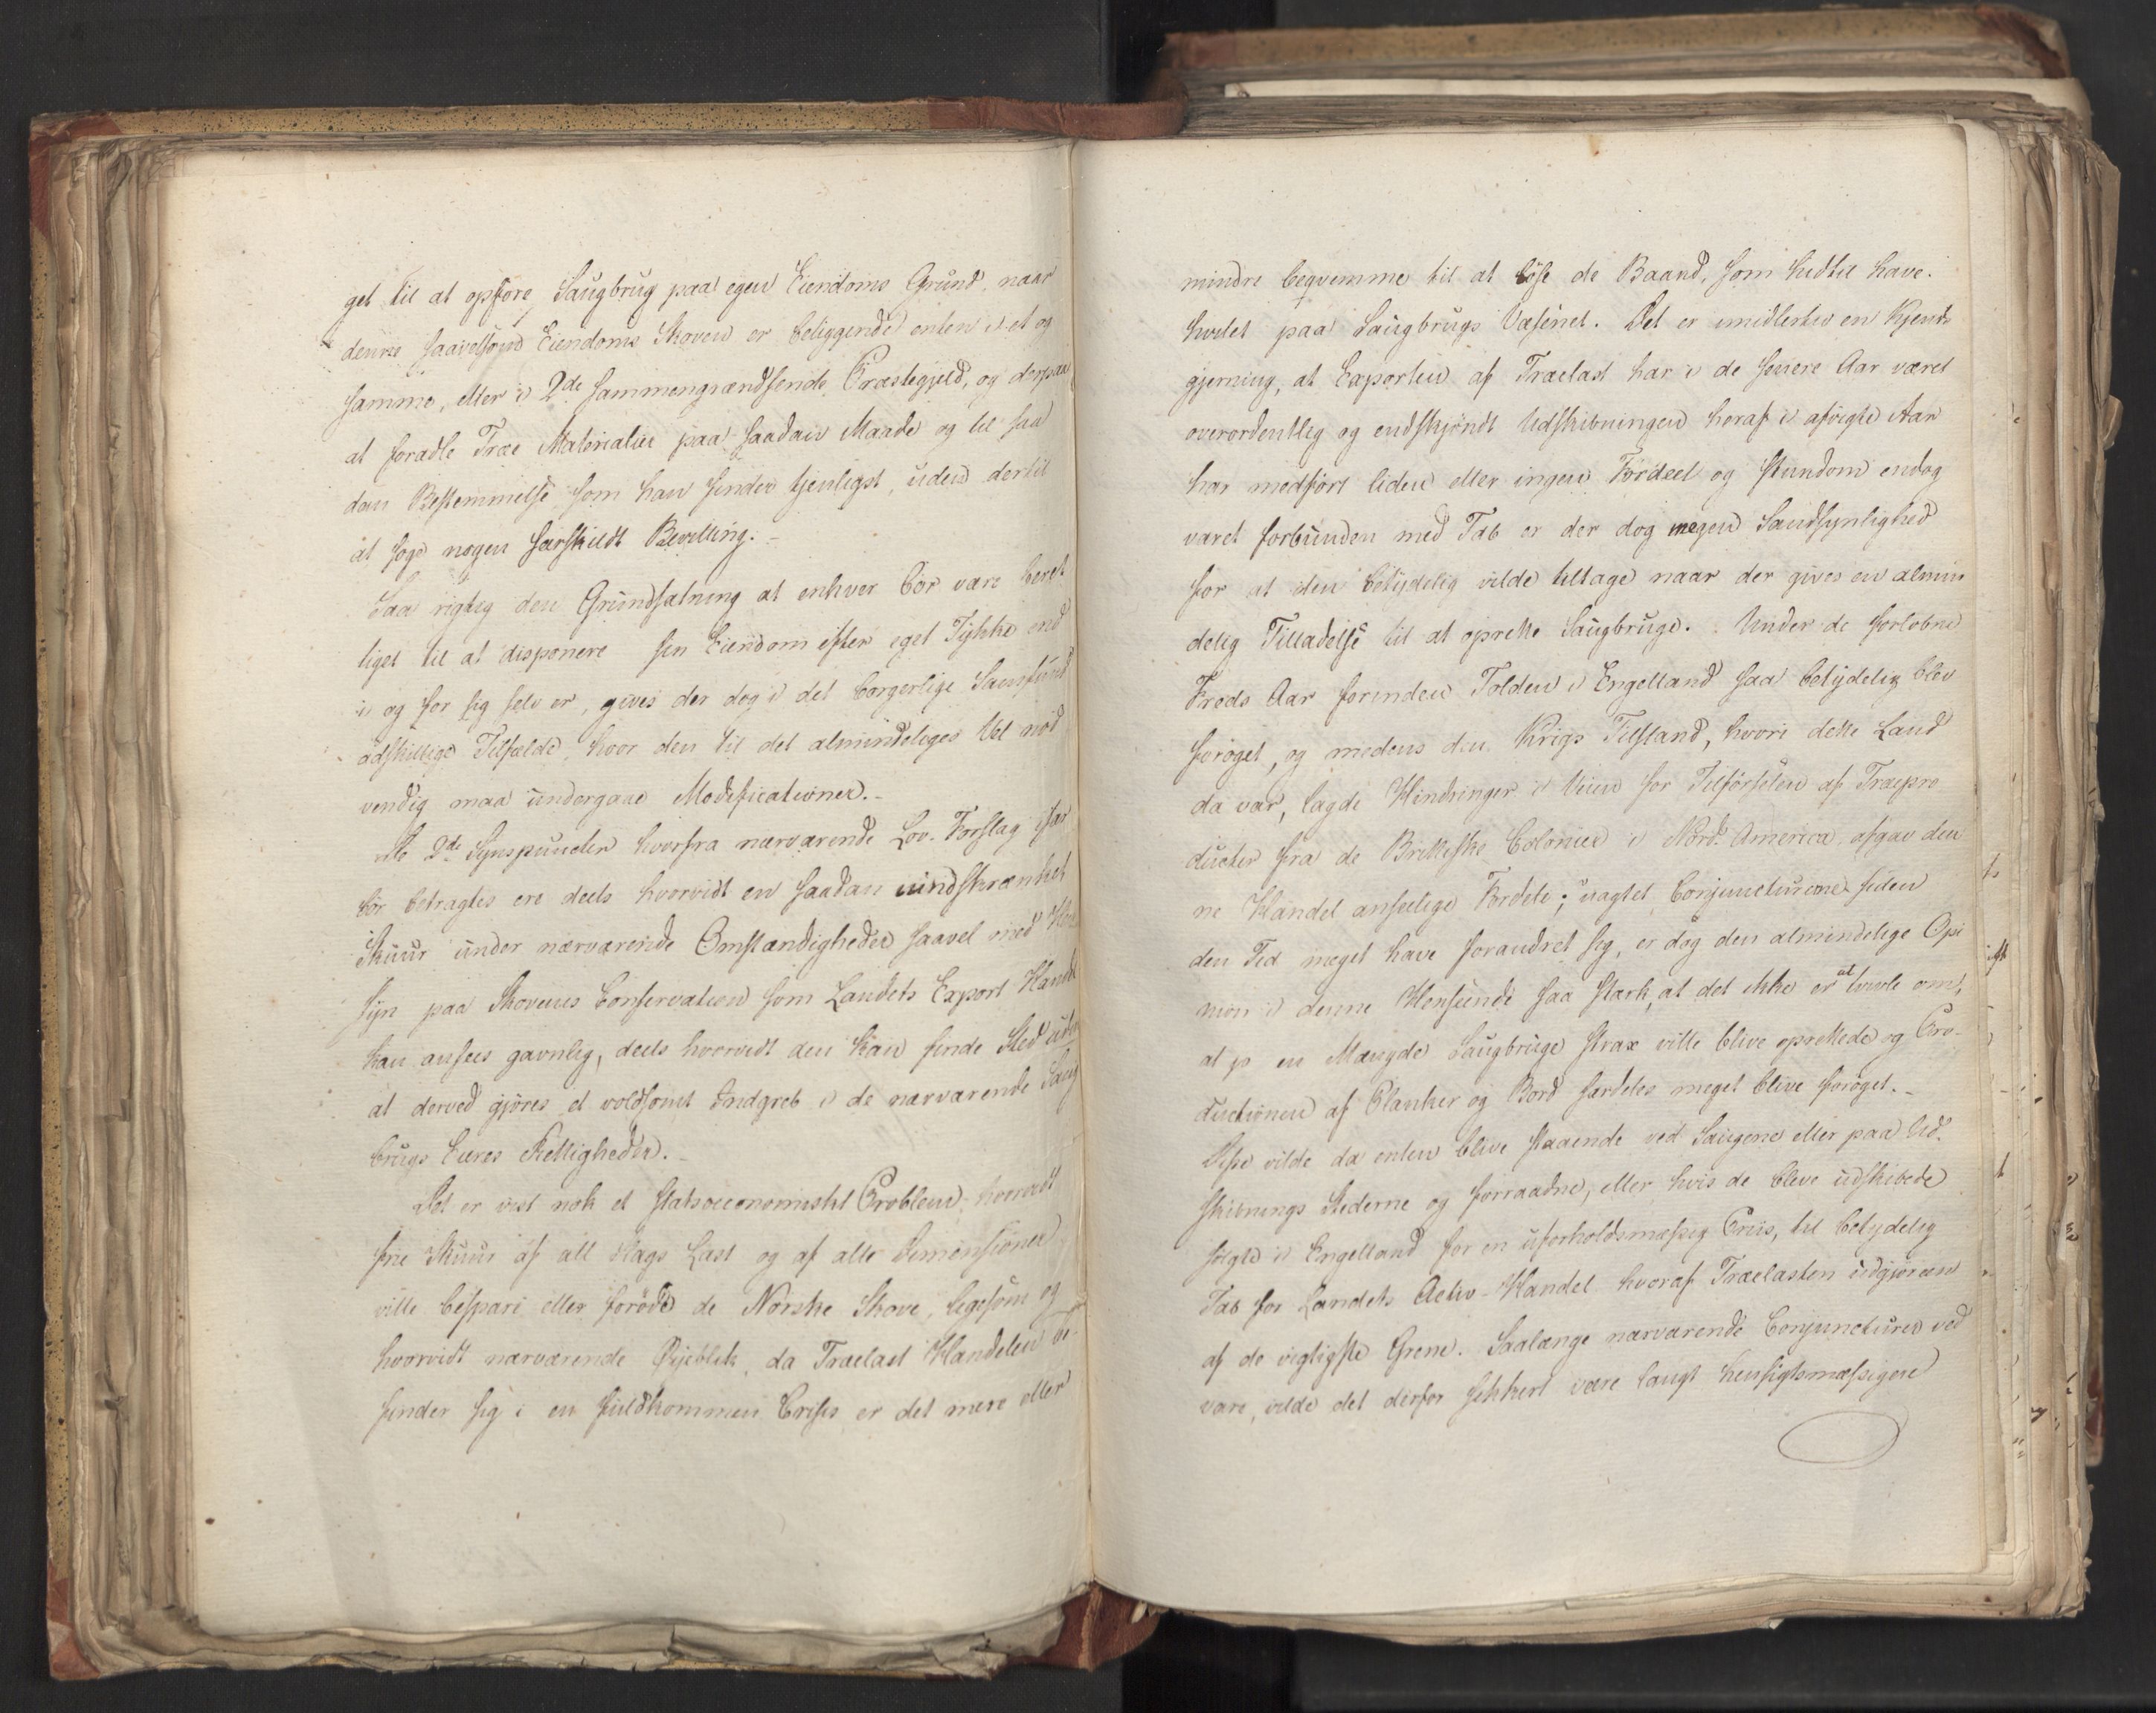 get til at opføre Saugbrug paa egen Eiendoms Grund, naar
denne saavelsom Eiendoms Skoven er beliggende enten i et og
samme, eller i 2de sammengrændsende Præstegjeld, og derpaa
at forædle Træ Materialier paa saadan Maade og til saa
dan Bestemmelse som han finder tjenligst, uden dertil
at søge nogen særskildt Bevilling. -
Saa rigtig den Grundsætning at enhver bør være beret
tiget til at disponere sin Eiendom efter eget Tykke end
i og for sig selv er, gives der dog i det borgerlige Samfund
adskillige Tilfælde, hvor den til det almindeliges Vel nød
vendig maa undergaae Modificationer. -
De 2de Synspuncter hvorfra nærværende Lov-Forslag især
bør betragtes ere deels hvorvidt en saadan uindskrænket
Skuur under nærværende Omstændigheder saavel med Hen
syn paa Skovenes Conservation som Landets Export Handel
kan ansees gavnlig, deels hvorvidt den kan finde Sted uden
at derved gjøres et voldsomt Indgreb i de nærværende Saug
brugs Eieres Rettigheder. -
Det er vist nok et statsoeconomiskt Problem, hvorvidt
frie Skuur af all Slags Last og af alle Dimensioner
ville bespare eller forøde de Norske Skove, ligesom og
hvorvidt nærværende Øjeblik, da Trælast Handelen be-
finder sig i en fuldkommen Crisis, er det mere eller
mindre beqvemme til at løse de Baand, som hidtil have
hvilet paa Saugbrugs Væsenet. Det er imidlertid en Kjends
gjerning, at Exporten af Trælast har i de senere Aar været
overordentlig og endskjøndt Udskibningen heraf i afvigte Aar
har medført liden eller ingen Fordeel og stundom endog
været forbunden med Tab er der dog megen Sandsynlighed
for at den betydelig vilde tiltage naar der gives en almin
delig Tilladelse til at oprette Saugbruge. Under de forløbne
Freds Aar forinden Tolden i Engelland saa betydelig blev
forøget, og medens den Krigs Tilstand, hvori dette Land
da var, lagde Hindringer i Veien for Tilførselen af Træpro
ducter fra de Brittiske Colonier i Nord-America, afgav den
ne Handel anseelige Fordele; uagtet Conjuncturerne siden
den Tid meget have forandret sig, er dog den almindelige Opi
nion i denne Henseende saa stærk, at det ikke er at tvivle om,
at jo en Mængde Saugbruge strax ville blive oprettede og Pro-
ductionen af Planker og Bord særdeles meget blive forøget. -
Disse vilde da enten blive staaende ved Saugene eller paa Ud-
skibnings Stederne og forraadne, eller hvis de bleve udskibede
solgte i Engelland for en uforholdsmæssig Priis, til betydelig
Tab for Landets Activ-Handel hvoraf Trælasten udgjør een
af de vigtigste Grene. Saalænge nærværende Conjuncturer ved
vare, vilde det derfor sikkert være langt hensigtsmæssigere